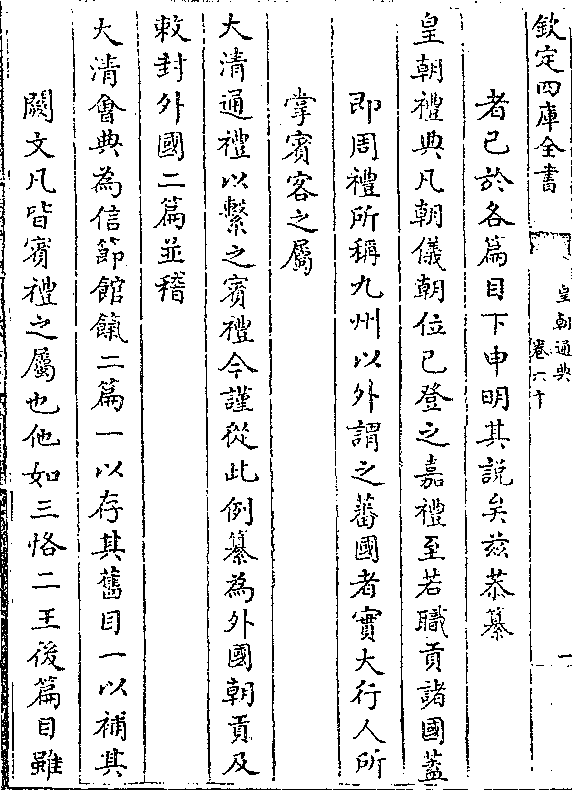 欽定四庫全書
皇朝通典
卷六十
一
者已於各篇目下申明其説矣茲恭纂
皇朝禮典凡朝儀朝位已登之嘉禮至若職貢諸國蓋
即周禮所稱九州以外謂之蕃國者實大行人所
掌賓客之屬
大清通禮以繫之賓禮今謹從此例纂為外國朝貢及
敕封外國二篇並稽
大清會典為信節館餼二篇一以存其舊目一以補其
闕文凡皆賓禮之屬也他如三恪二王後篇目雖